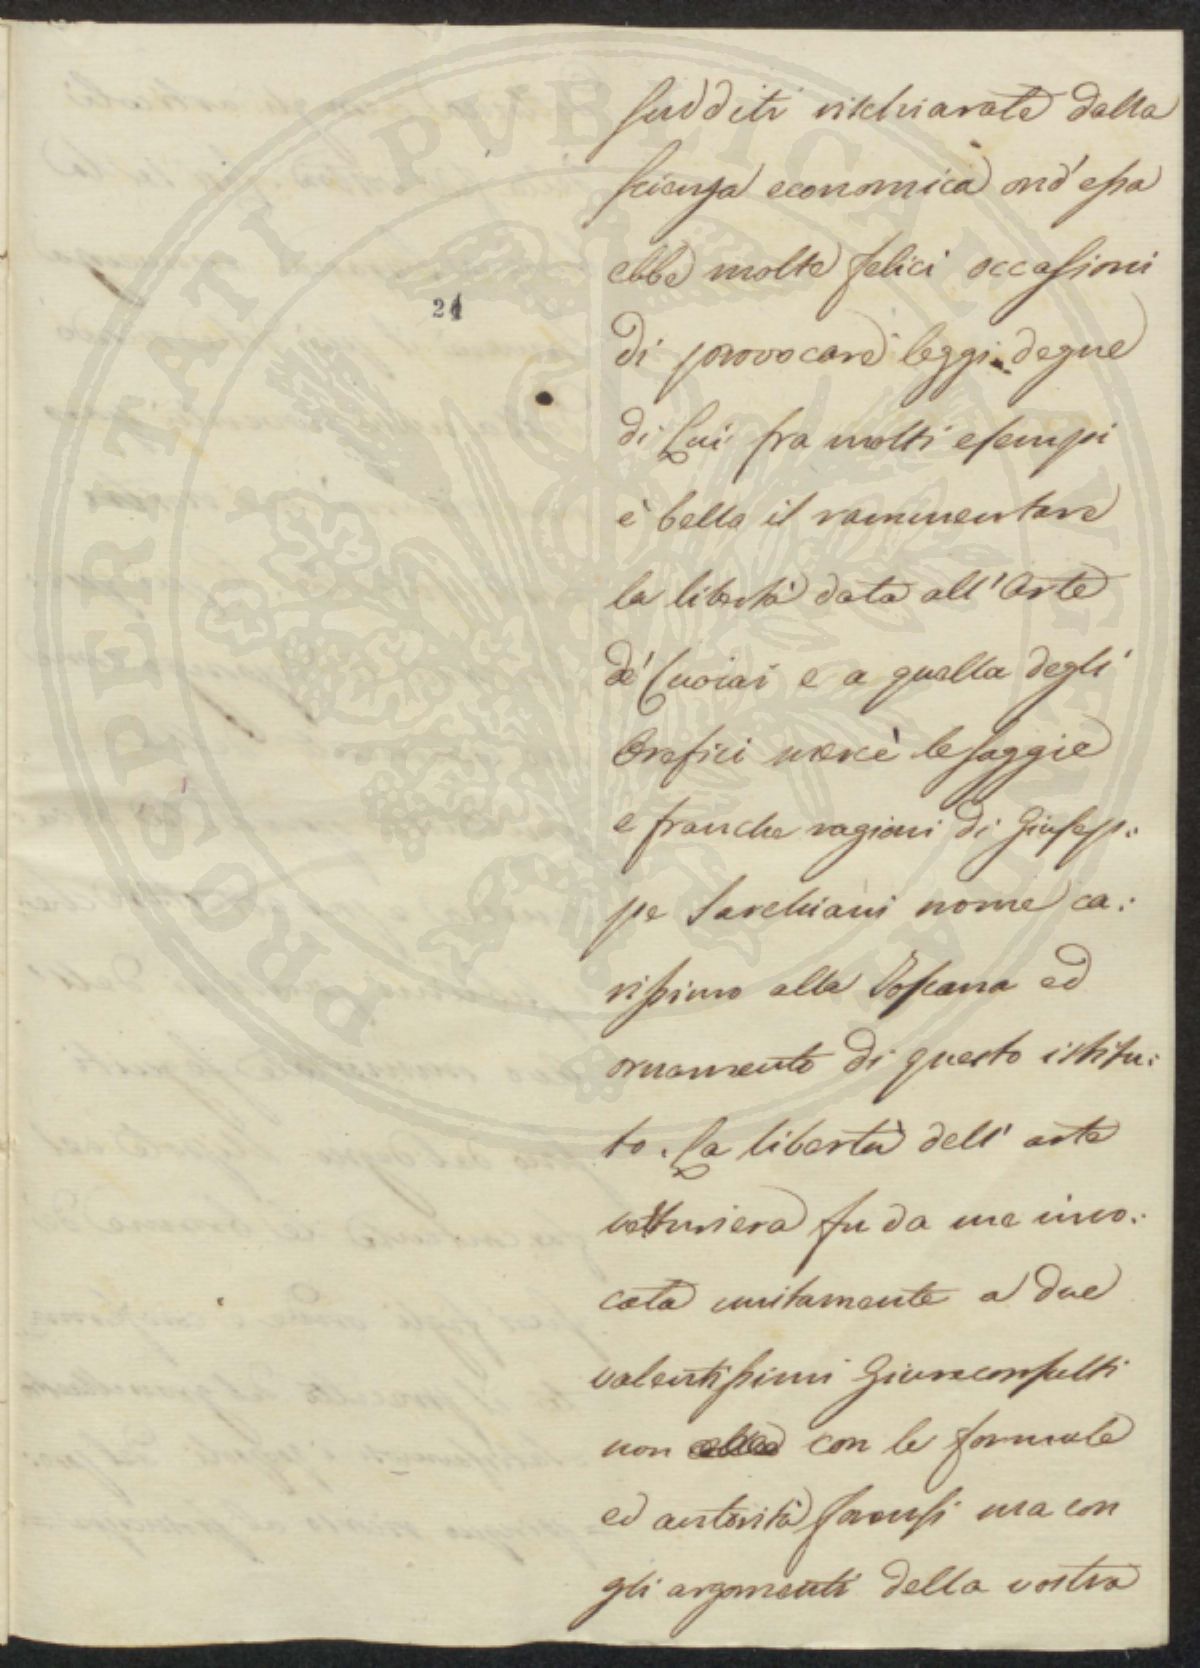 sudditi rischiarate dalla
scienza economica ond'essa
ebbe molte felici occasioni
21
di provocare leggi degne
di Lui fra molti esempi
è bella il rammentare
la libertà data all'Arte
de' Cuoiai e a quella degli
Orefici mercè le saggie
e franche ragioni di Giusep:
pe Sarchiani nome ca:
rissimo alla Toscana ed
ornamento di questo istitu:
to. La libertà dell' arte
vetturiera fu da me invo:
cata unitamente a due
valentissimi Giureconsulti
non con le formule
ed autorità forensi ma con
gli argomenti della vostra
PROSPERITATI PVBLICAE